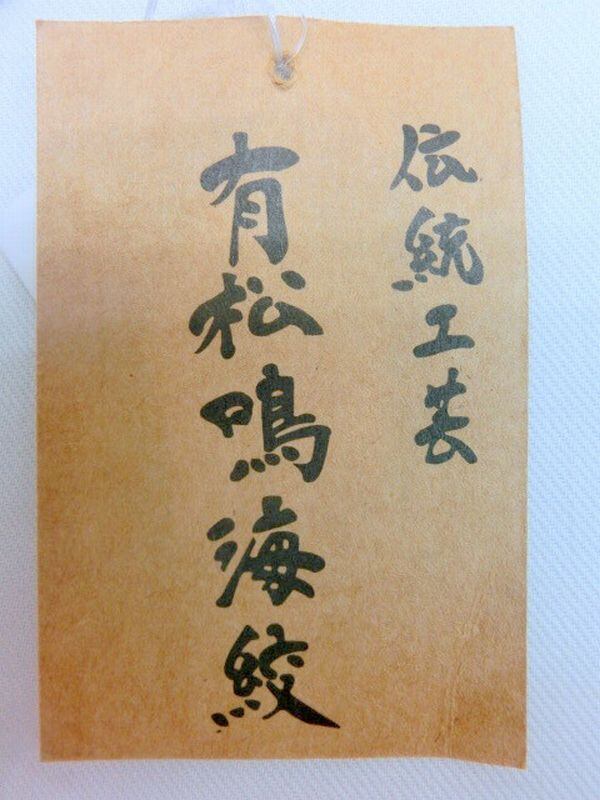 伝統工芸
有松鳴海絞